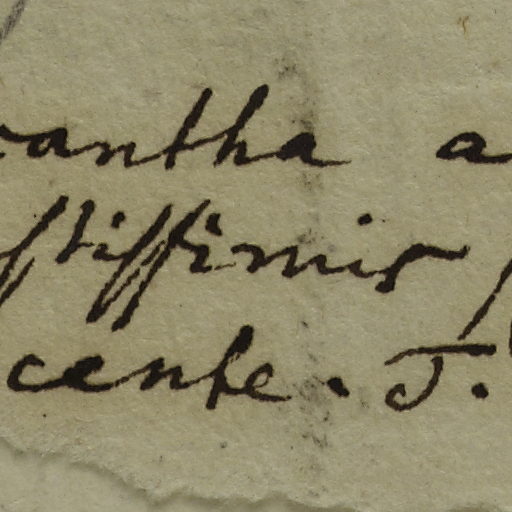 cantha a
stissimis
cente. T.